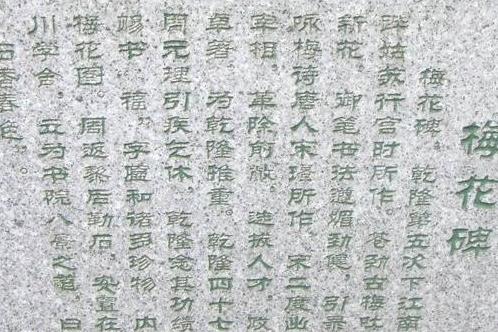 梅花碑
梅花碑。乾隆第五次下江南
姑苏行宫时所作。苍劲古梅吐
新花 御笔书法遒媚劲健。引录
咏梅诗唐人宋璟所作。宋二度出
宰相。革除前弊。选拔人才。政
卓著 为乾隆推重。乾隆四十七
周元理引疾乞休。乾隆念其功绩
赐书 福。字画和诸多珍物 内
梅花图。周返黎后勒石 奂置在
川学舍。立为书院八景之首。曰
古香春